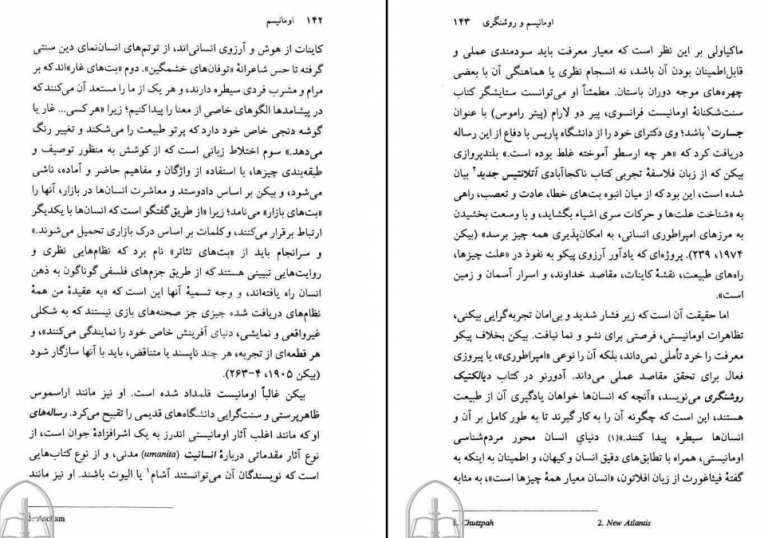 ۱۴۲ اومانیسم
کاینات از هوش و آرزوی انسانی‌اند، از توتم‌های انسان‌نمای دین سنتی
گرفته تا حس شاعرانهٔ «توفان‌های خشمگین». دوم «بت‌های غار»‌اند که بر
مرام و مشرب فردی سیطره دارند، و هر یک از ما را مستعد آن می‌کنند که
در پیشامدها الگوهای خاصی از معنا را پیدا کنیم؛ زیرا «هر کسی... غار یا
گوشه دنجی خاص خود دارد که پرتو طبیعت را می‌شکند و تغییر رنگ
می‌دهد.» سوم اختلاط زبانی است که از کوشش به منظور توصیف و
طبقه‌بندی چیزها، با استفاده از واژگان و مفاهیم حاضر و آماده، ناشی
می‌شود، و بیکن بر اساس دادوستد و معاشرت انسان‌ها در بازار، آنها را
«بت‌های بازار» می‌نامد؛ زیرا «از طریق گفتگو است که انسان‌ها با یکدیگر
ارتباط برقرار می‌کنند، و کلمات بر اساس درک بازاری تحمیل می‌شوند.»
و سرانجام باید از «بت‌های تئاتر» نام برد که نظام‌هایی نظری و
روایت‌هایی تبیینی هستند که از طریق جزم‌های فلسفی گوناگون به ذهن
انسان راه یافته‌اند، و وجه تسمیهٔ آنها این است که «به عقیدهٔ من همهٔ
نظام‌های دریافت شده چیزی جز صحنه‌های بازی نیستند که به شکلی
غیرواقعی و نمایشی، دنیای آفرینش خاص خود را نمایندگی می‌کنند»، و
هر قطعه‌ای از تجربه، هر چند ناپسند یا متناقض، باید با آنها سازگار شود
(بیکن ۱۹۰۵، ۴-۲۶۳).
بیکن غالباً اومانیست قلمداد شده است. او نیز مانند اراسموس
ظاهرپرستی و سنت‌گرایی دانشگاه‌های قدیمی را تقبیح می‌کرد. رساله‌های
او که مانند اغلب آثار اومانیستی اندرز به یک اشرافزادهٔ جوان است، از
نوع آثار مقدماتی دربارهٔ انسانیت (umanita) مدنی، و از نوع کتاب‌هایی
است که نویسندگان آن می‌توانستند آشام۱ یا الیوت باشند. او نیز مانند
1. Ascham
اومانیسم و روشنگری ۱۴۳
ماکیاولی بر این نظر است که معیار معرفت باید سودمندی عملی و
قابل‌اطمینان بودن آن باشد، نه انسجام نظری یا هماهنگی آن با بعضی
چهره‌های موجه دوران باستان. مطمئناً او می‌توانست ستایشگر کتاب
سنت‌شکنانهٔ اومانیست فرانسوی، پیر دو لارام (پیتر راموس) با عنوان
جسارت۱ باشد؛ وی دکترای خود را از دانشگاه پاریس با دفاع از این رساله
دریافت کرد که «هر چه ارسطو آموخته غلط بوده است.» بلندپروازی
بیکن که از زبان فلاسفهٔ تجربی کتاب ناکجاآبادی آتلانتیس جدید۲ بیان
شده است، این بود که از میان انبوه بت‌های خطا، عادت و تعصب، راهی
به «شناخت علت‌ها و حرکات سری اشیاء بگشاید، و با وسعت بخشیدن
به مرزهای امپراطوری انسانی، به امکان‌پذیری همه چیز برسد» (بیکن
۱۹۷۴، ۲۳۹). پروژه‌ای که یادآور آرزوی پیکو به نفوذ در «علت چیزها،
راه‌های طبیعت، نقشهٔ کاینات، مقاصد خداوند، و اسرار آسمان و زمین
است».
اما حقیقت آن است که زیر فشار شدید و بی‌امان تجربه‌گرایی بیکنی،
تظاهرات اومانیستی، فرصتی برای نشو و نما نیافت. بیکن بخلاف پیکو
معرفت را خرد تأملی نمی‌داند، بلکه آن را نوعی «امپراطوری»، یا پیروزی
فعال برای تحقق مقاصد عملی می‌داند. آدورنو در کتاب دیالکتیک
روشنگری می‌نویسد، «آنچه که انسان‌ها خواهان یادگیری آن از طبیعت
هستند، این است که چگونه آن را به کار گیرند تا به طور کامل بر آن و
انسان‌ها سیطره پیدا کنند.»(۱) دنیای انسان محور مردم‌شناسی
اومانیستی، همراه با تطابق‌های دقیق انسان و کیهان، و اطمینان به اینکه به
گفتهٔ فیثاغورث از زبان افلاتون، «انسان معیار همهٔ چیزها است»، به مثابه
1. Chutzpah 2. New Atlantis